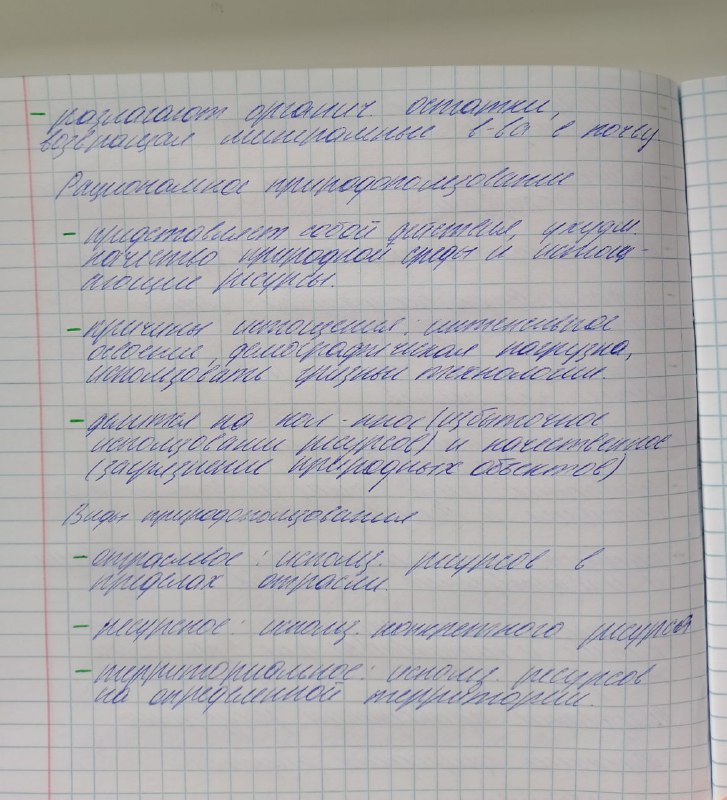 - разлагают органич. остатки,
возвращая минеральные в-ва в почву.
Рациональное природопользование
- представляет собой действия, ухудш.
качество природной среды и истощ-
ающие ресурсы.
- причины истощения: интенсивное
освоение, демографическая нагрузка,
использовать грязные технологии.
- делится на кол-нное (избыточное
использовании ресурсов) и качественное
(загрязнение природных объектов)
Виды природопользования
- отраслевое: использ. ресурсов в
пределах отрасли.
- ресурсное: использ. конкретного ресурса
- территориальное: использ. ресурсов
на определенной территории.